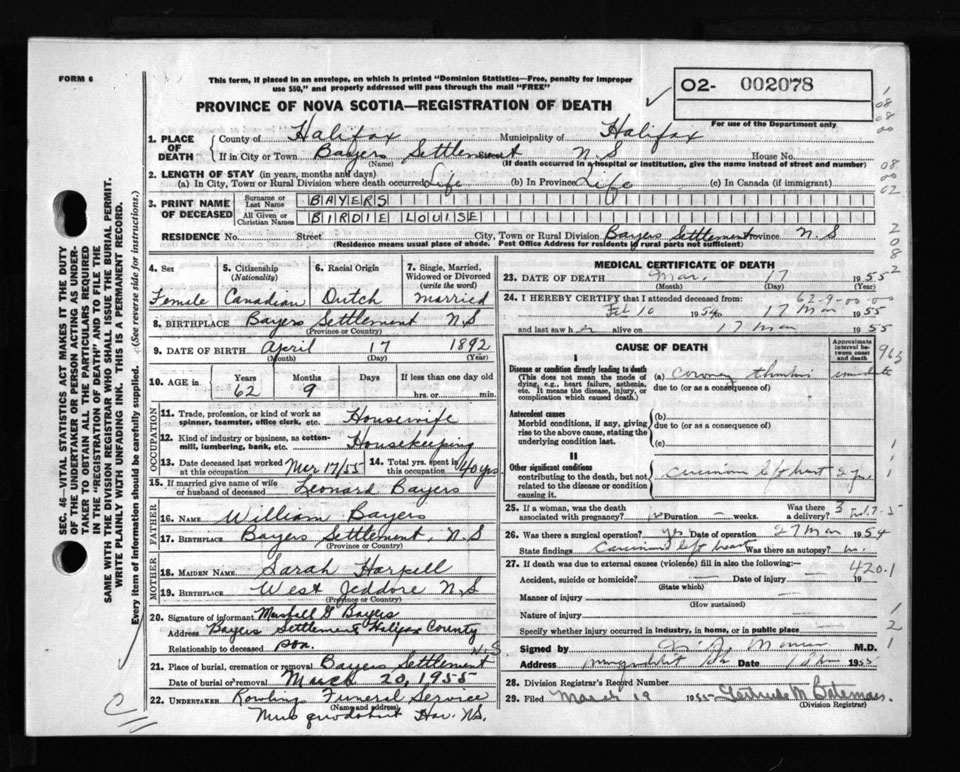 FORM 6
This form, if placed in an envelope, on which is printed "Dominion Statistics—Free, penalty for improper
use $50," and properly addressed will pass through the mail "FREE"
PROVINCE OF NOVA SCOTIA—REGISTRATION OF DEATH
O2- 002078
For use of the Department only
SEC. 46 VITAL STATISTICS ACT MAKES IT THE DUTY
OF THE UNDERTAKER OR PERSON ACTING AS UNDER-
TAKER TO OBTAIN ALL THE PARTICULARS REQUIRED
IN THE "REGISTRATION OF DEATH" AND TO FILE THE
SAME WITH THE DIVISION REGISTRAR WHO SHALL ISSUE THE BURIAL PERMIT.
WRITE PLAINLY WITH UNFADING INK. THIS IS A PERMANENT RECORD.
Every item of information should be carefully supplied. (See reverse side for instructions.)
1. PLACE OF DEATH County of Halifax Municipality of Halifax
If in City or Town Bayers Settlement N S House No.
(Name) (If death occurred in a hospital or institution, give the name instead of street and number)
2. LENGTH OF STAY (in years, months and days)
(a) In City, Town or Rural Division where death occurred Life (b) In Province Life (c) In Canada (if immigrant)
3. PRINT NAME OF DECEASED Surname or Last Name BAYERS
All Given or Christian Names BIRDIE LOUISE
RESIDENCE No. Street City, Town or Rural Division Bayers Settlement Province N. S
(Residence means usual place of abode. Post Office Address for residents of rural parts not sufficient)
4. Sex Female
5. Citizenship (Nationality) Canadian
6. Racial Origin Dutch
7. Single, Married, Widowed or Divorced (write the word) married
8. BIRTHPLACE Bayers Settlement N S
(Province or Country)
9. DATE OF BIRTH April 17 1892
(Month) (Day) (Year)
10. AGE in Years 62 Months 9 Days If less than one day old hrs. or min.
OCCUPATION
11. Trade, profession, or kind of work as spinner, teamster, office clerk, etc. Housewife
12. Kind of industry or business, as cotton-mill, lumbering, bank, etc. Housekeeping
13. Date deceased last worked at this occupation Mar 17/55 14. Total yrs. spent in this occupation 40 yrs
15. If married give name of wife or husband of deceased Leonard Bayers
FATHER
16. NAME William Bayers
17. BIRTHPLACE Bayers Settlement, N. S
(Province or Country)
MOTHER
18. MAIDEN NAME Sarah Harpell
19. BIRTHPLACE West Jeddore N S
(Province or Country)
20. Signature of informant Bayers
Address Bayers Settlement Halifax County N. S
Relationship to deceased son.
21. Place of burial, cremation or removal Bayers Settlement
Date of burial or removal March 20, 1955
22. UNDERTAKER Rowlings Funeral Service
(Name and address)
Musquodoboit Har. N.S.
MEDICAL CERTIFICATE OF DEATH
23. DATE OF DEATH Mar. 17 1955
(Month) (Day)
24. I HEREBY CERTIFY that I attended deceased from: 62-9-00-00
Feb 10 1954 to 17 Mar 1955
and last saw her alive on 17 Mar 1955
CAUSE OF DEATH
Approximate interval between onset and death
I
Disease or condition directly leading to death
(This does not mean the mode of dying, e.g., heart failure, asthenia, etc. It means the disease, injury, or complication which caused death.)
(a) coronary thrombosis immediate
due to (or as a consequence of)
Antecedent causes
Morbid conditions, if any, giving rise to the above cause, stating the underlying condition last.
(b)
due to (or as a consequence of)
(c)
II
Other significant conditions
contributing to the death, but not related to the disease or condition causing it.
25. If a woman, was the death associated with pregnancy? Duration — weeks. Was there a delivery?
26. Was there a surgical operation? yes Date of operation 27 Mar 1954
State findings Was there an autopsy? no.
27. If death was due to external causes (violence) fill in also the following:— 420.1
Accident, suicide or homicide? — Date of injury — 19
(State which)
Manner of injury —
(How sustained)
Nature of injury —
Specify whether injury occurred in industry, in home, or in public place —
Signed by M.D.
Address Date 1955
28. Division Registrar's Record Number
29. Filed March 19 1955 Gertrude M Bateman
(Division Registrar)